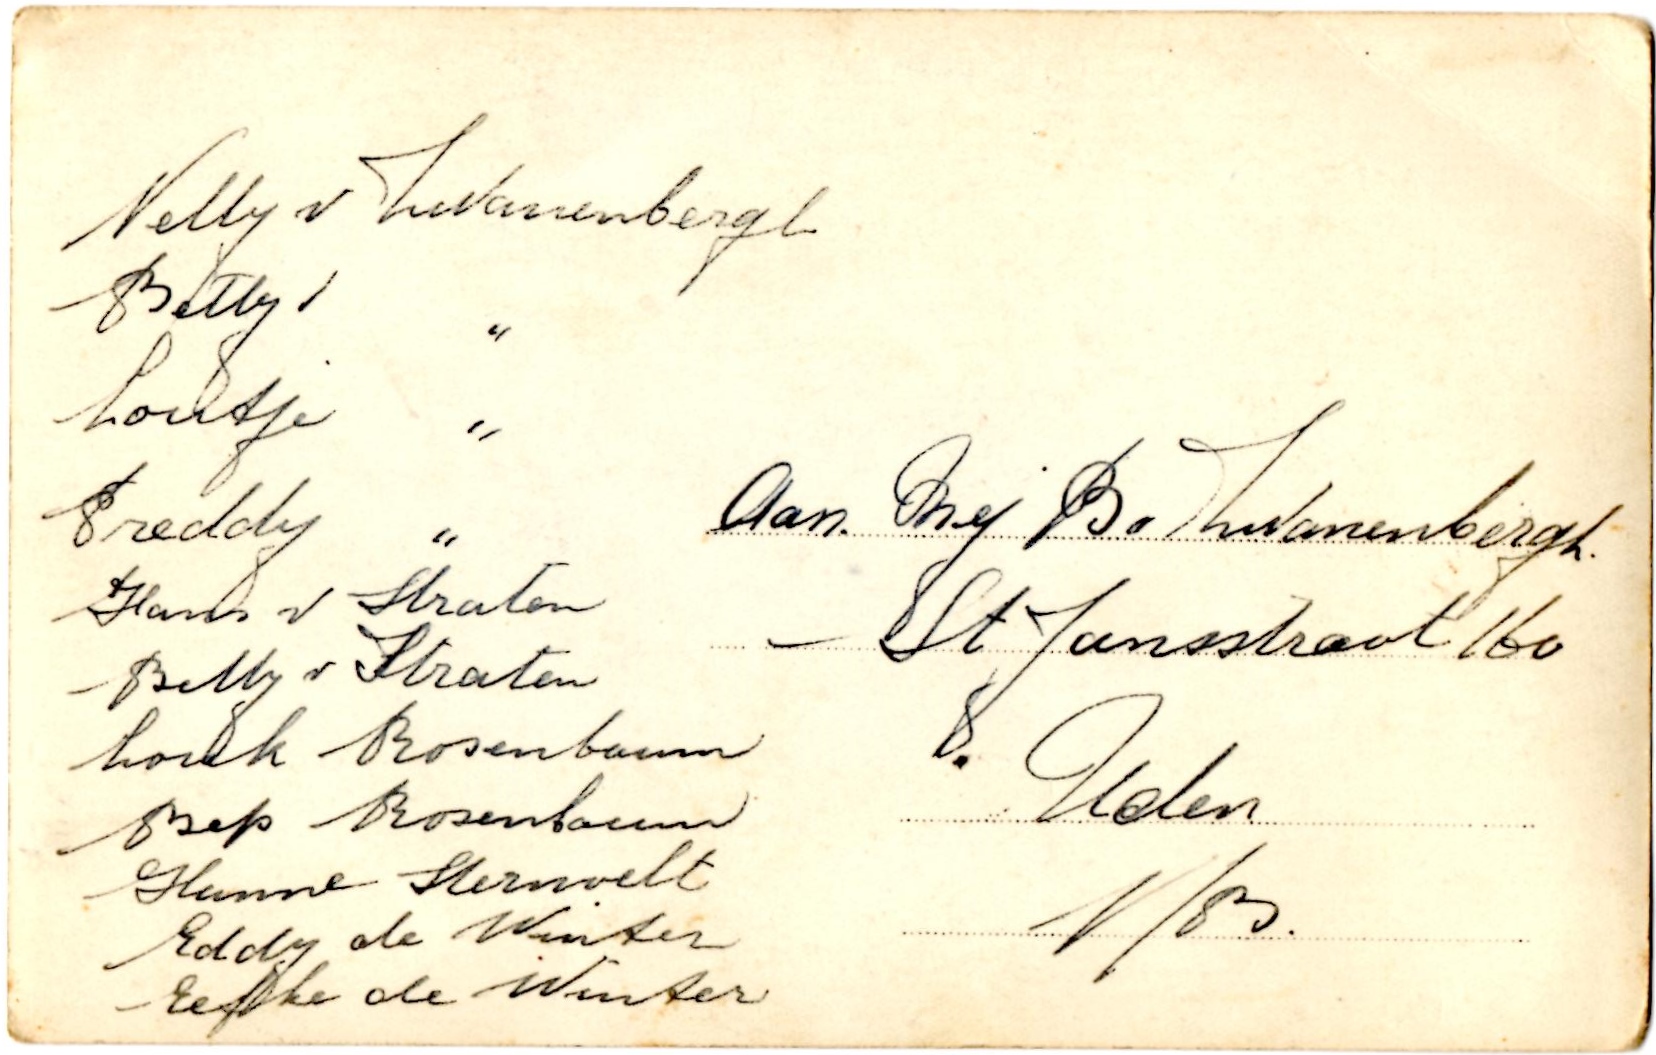 Nelly v Zwanenbergh
Betty v "
Loutje "
Freddy "
Hans v Straten
Betty v Straten
Louk Rosenbaum
Bep Rosenbaum
Hanne Sternvelt
Eddy de Winter
Eefke de Winter
Aan. Mej B. v Zwanenbergh.
— St Jansstraat 160
Uden
N/B.